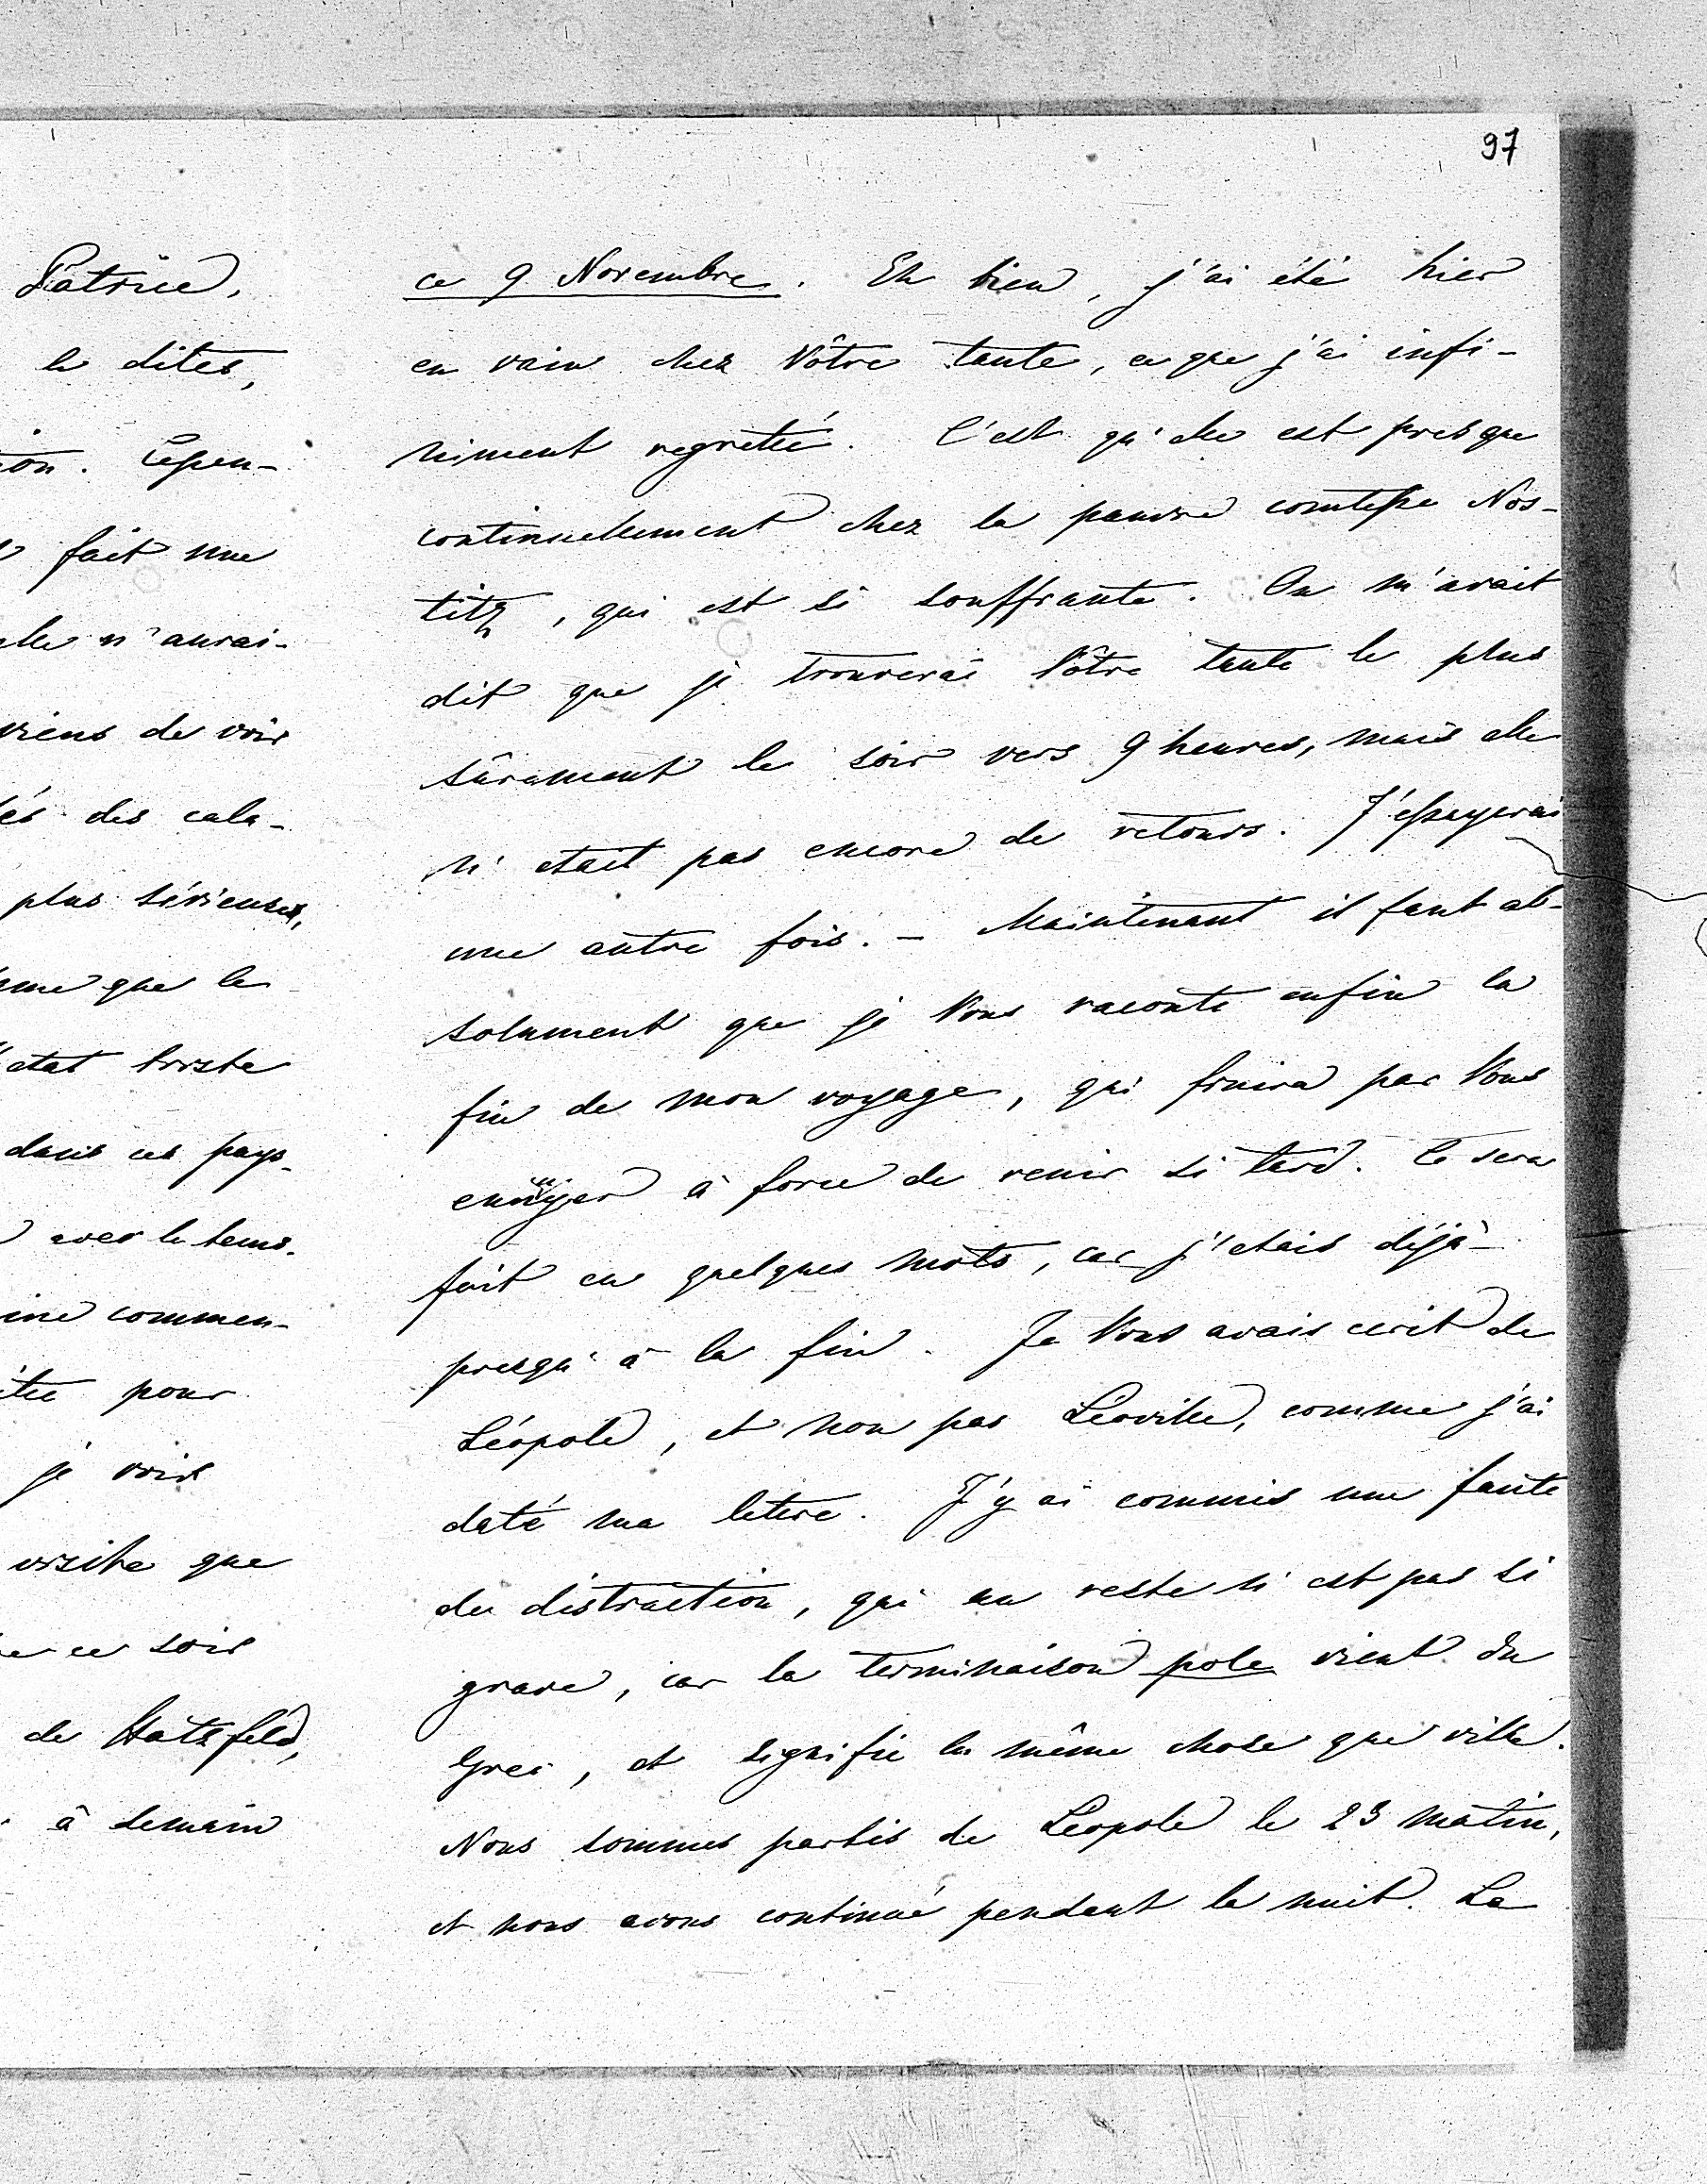 97
Patrice,
le dites,
ion. Cepen-
fait une
elle n'aurai-
viens de voir
és des cala-
plus sérieuses,
me que le
état triste
dans ces pays-
avec le tems.
ine commen-
itée pour
je vois
visite que
ce soir
de Hatzfeld,
à demain
ce 9 Novembre. Eh bien, j'ai été hier
en vain chez Vôtre tante, ce que j'ai infi-
niment regretté. C'est qu'elle est presque
continuellement chez la pauvre comtesse Nos-
titz, qui est si souffrante. On m'avait
dit que je trouverai Vôtre tante le plus
sûrement le soir vers 9 heures, mais elle
n'etait pas encore de retour. J'essayerai
une autre fois. - Maintenant il faut ab-
solument que je Vous raconte enfin la
fin de mon voyage, qui finira par Vous
ennuyer à force de venir si tard. Ce sera
fait en quelques mots, car j'etais déjà
presqu'à la fin. Je Vous avais ecrit de
Léopole, et non pas Léoville, comme j'ai
daté ma lettre. J'y ai commis une faute
de distraction, qui au reste n'est pas si
grave, car la terminaison pole vient du
Grec, et signifie la même chose que ville.
Nous sommes partis de Léopole le 23 matin,
et nous avons continué pendant la nuit. La